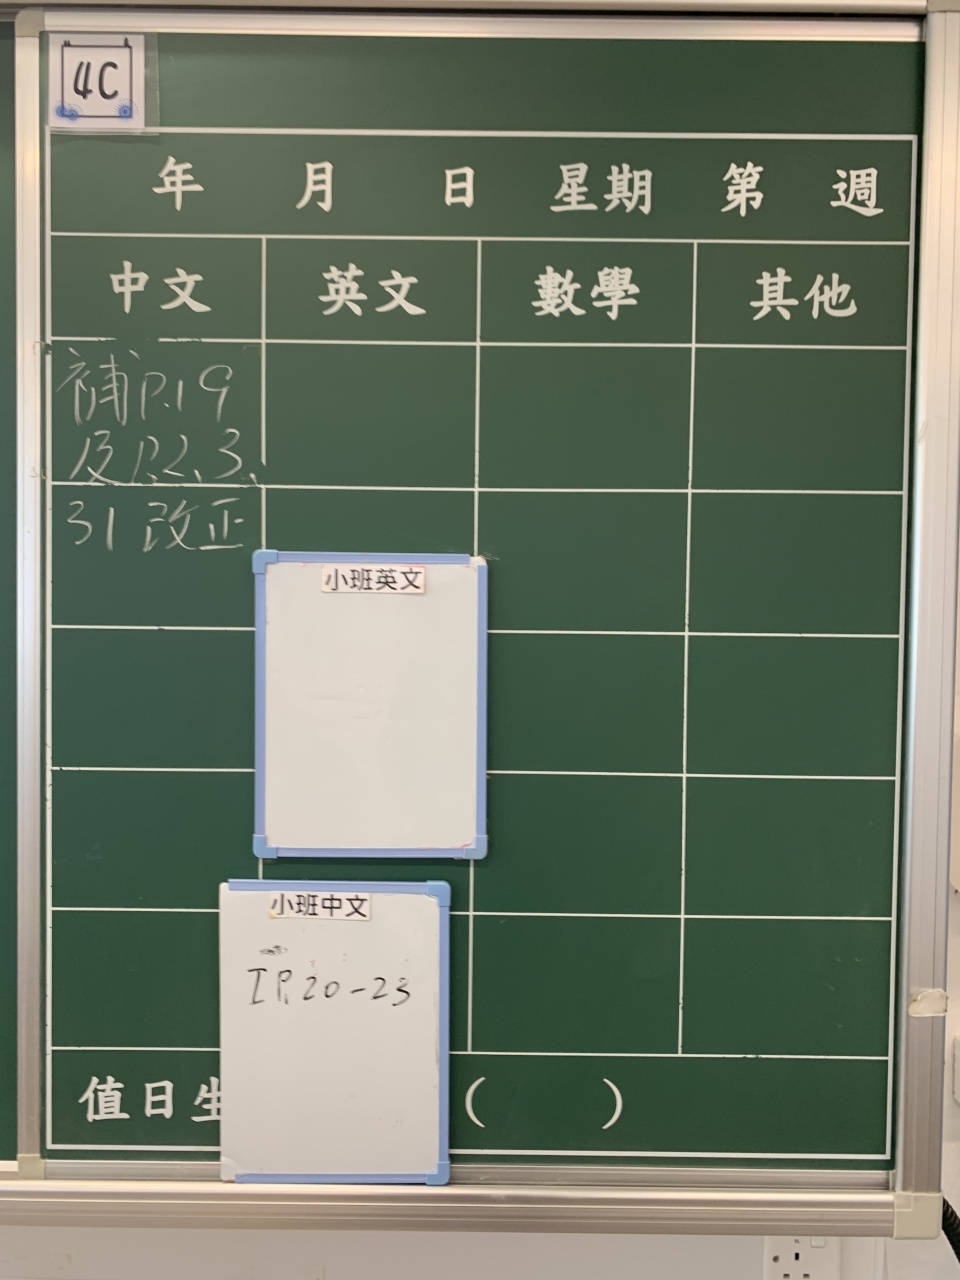 4C
年 月 日 星期 第 週
中文 英文 數學 其他
補P.19
及P.2、3、
31 改正
小班英文
小班中文
I P.20-23
值日生 ( )